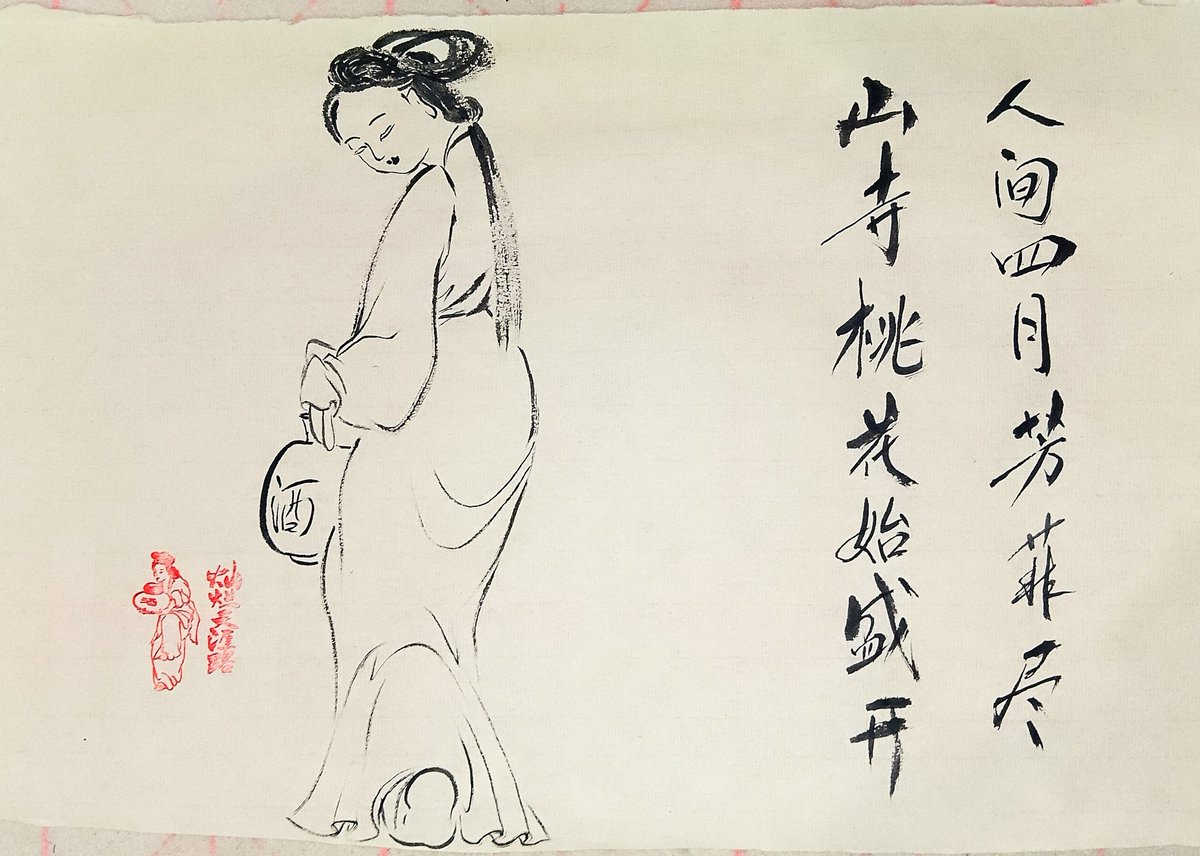 人间四月芳菲尽
山寺桃花始盛开
酒